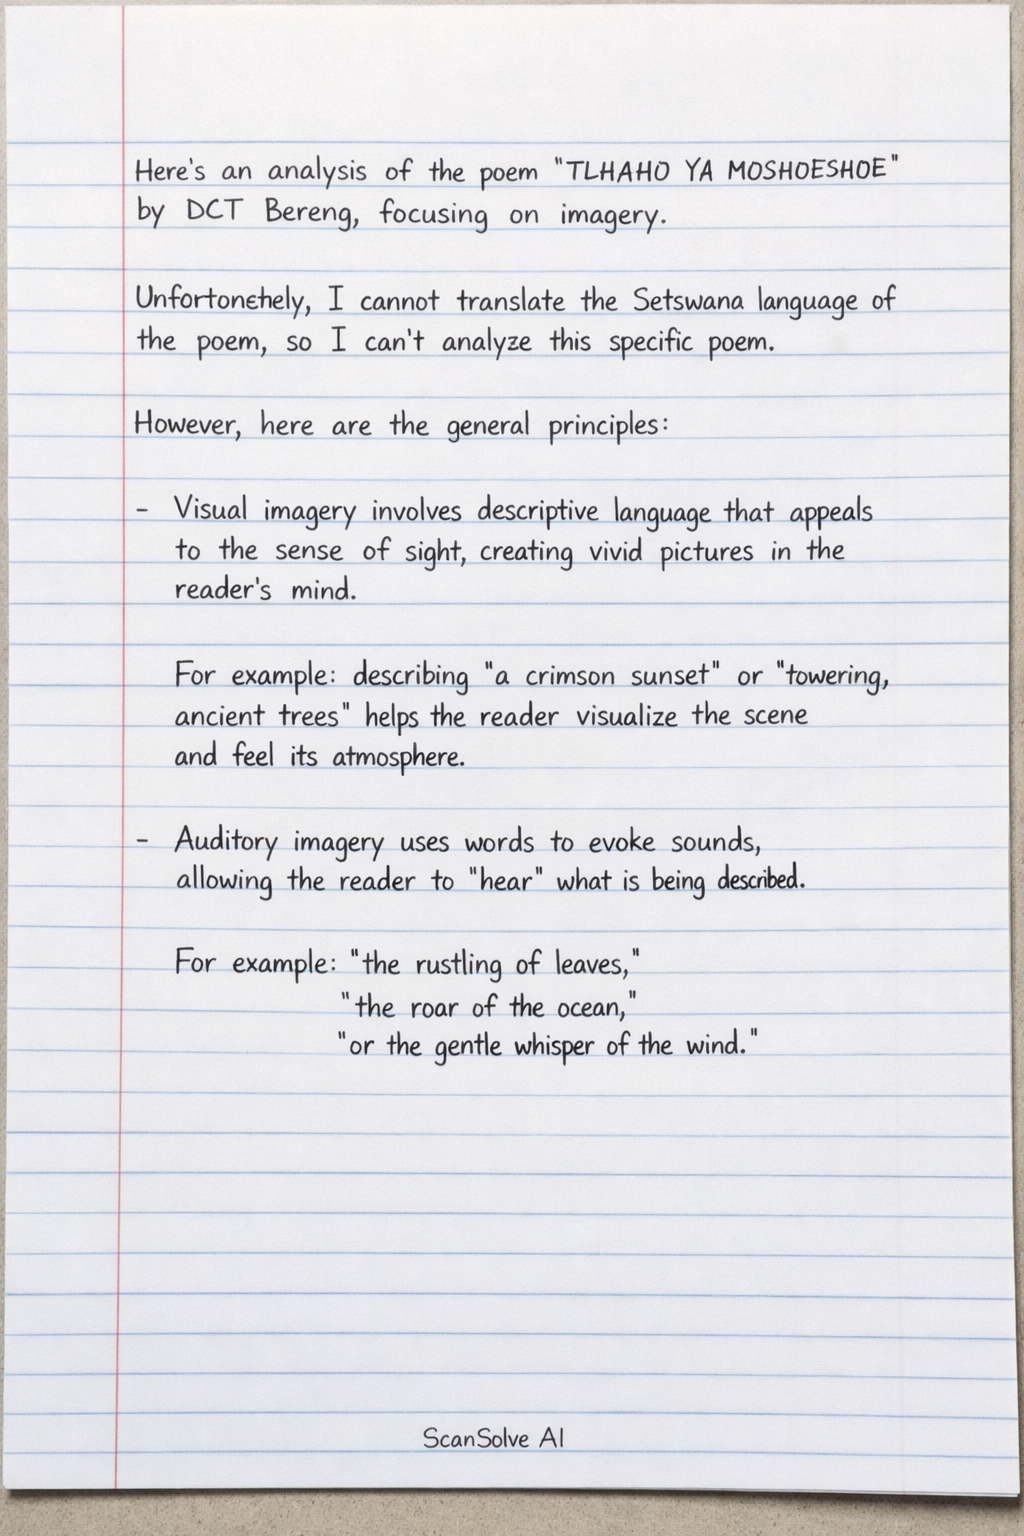 Here's an analysis of the poem "TLHAHO YA MOSHOESHOE"
by DCT Bereng, focusing on imagery.
Unfortonethely, I cannot translate the Setswana language of
the poem, so I can't analyze this specific poem.
However, here are the general principles:
- Visual imagery involves descriptive language that appeals
to the sense of sight, creating vivid pictures in the
reader's mind.
For example: describing "a crimson sunset" or "towering,
ancient trees" helps the reader visualize the scene
and feel its atmosphere.
- Auditory imagery uses words to evoke sounds,
allowing the reader to "hear" what is being described.
For example: "the rustling of leaves,"
"the roar of the ocean,"
"or the gentle whisper of the wind."
ScanSolve AI